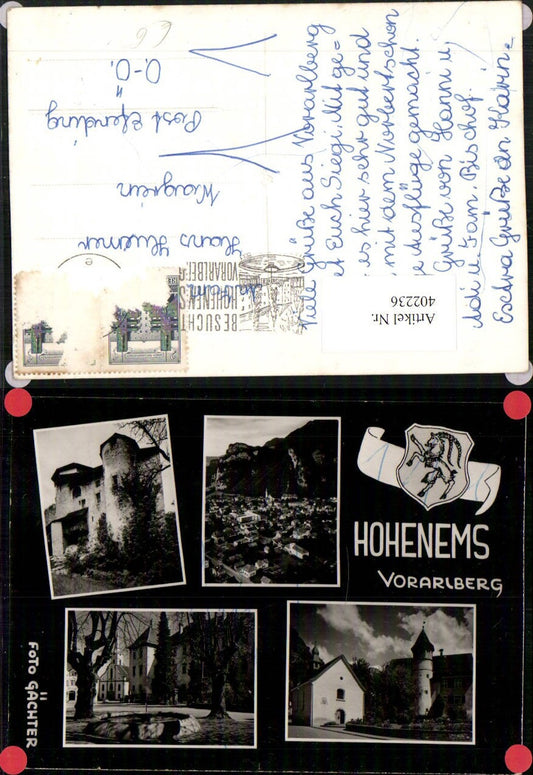 Viele Grüße aus Vorarlberg
et Euch Siegi. Mit ge=
es hier sehr gut und
mit dem Norbert schon
e Ausflüge gemacht.
Grüße von Hanni u.
Adi u. Fam. Bischof.
Esctra Grüße an Karin.
Hans
Post Efending
O.-Ö.
BESUCHT
HOHENEMS
VORARLBERG
Artikel Nr.
402236
HOHENEMS
VORARLBERG
FOTO GÄCHTER